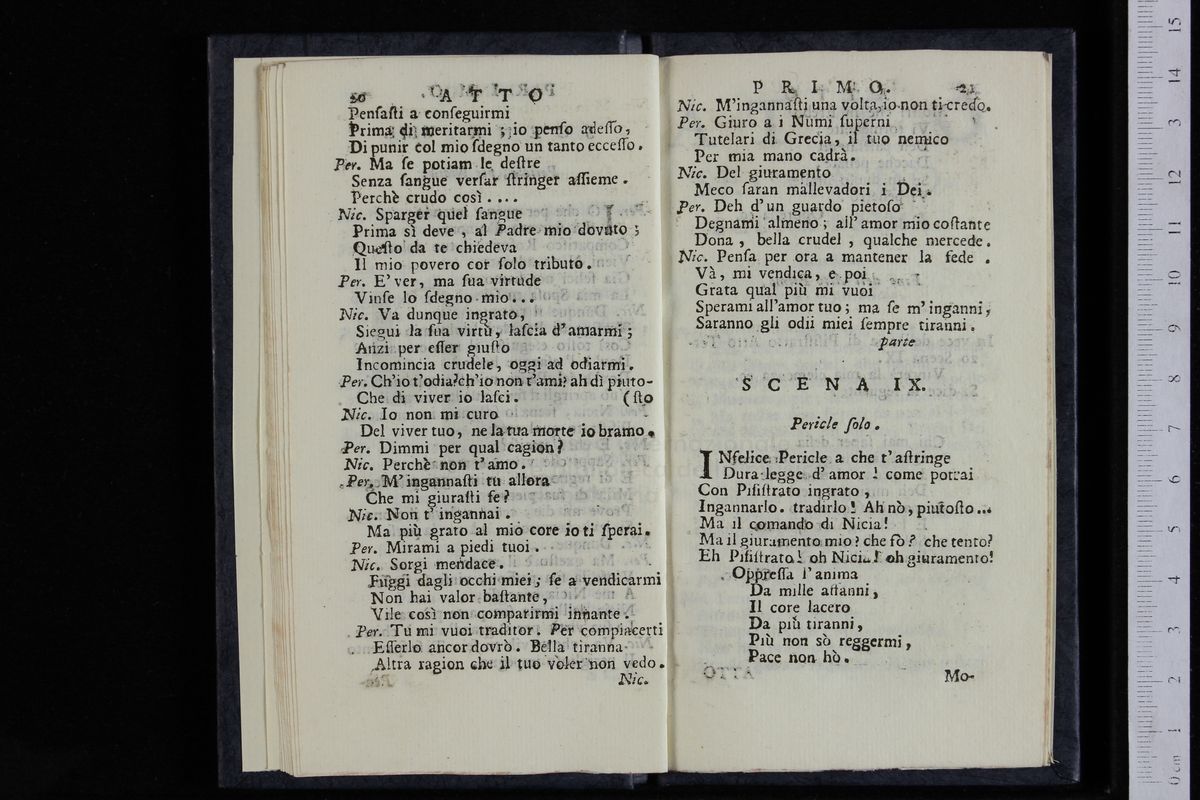 20 ATTO
Penſaſti a conſeguirmi
Prima di meritarmi ; io penſo adeſſo,
Di punir col mio ſdegno un tanto ecceſſo.
Per. Ma ſe potiam le deſtre
Senza ſangue verſar ſtringer aſſieme.
Perchè crudo così....
Nic. Sparger quel ſangue
Prima sì deve, al Padre mio dovuto ;
Queſto da te chiedeva
Il mio povero cor ſolo tributo.
Per. E' ver, ma ſua virtude
Vinſe lo ſdegno mio...
Nic. Va dunque ingrato,
Siegui la ſua virtù, laſcia d'amarmi ;
Anzi per eſſer giuſto
Incomincia crudele, oggi ad odiarmi.
Per. Ch'io t'odia? ch'io non t'ami? ah dì piuto-
Che di viver io laſci. (ſto
Nic. Io non mi curo
Del viver tuo, ne la tua morte io bramo.
Per. Dimmi per qual cagion?
Nic. Perchè non t'amo.
Per. M'ingannaſti tu allora
Che mi giuraſti fe?
Nic. Non t'ingannai.
Ma più grato al mio core io ti ſperai.
Per. Mirami a piedi tuoi.
Nic. Sorgi mendace.
Fuggi dagli occhi miei ; ſe a vendicarmi
Non hai valor baſtante,
Vile così non comparirmi innante.
Per. Tu mi vuoi traditor. Per compiacerti
Eſſerlo ancor dovrò. Bella tiranna
Altra ragion che il tuo voler non vedo.
Nic.
PRIMO. 21
Nic. M'ingannaſti una volta, io non ti credo.
Per. Giuro a i Numi ſuperni
Tutelari di Grecia, il tuo nemico
Per mia mano cadrà.
Nic. Del giuramento
Meco ſaran mallevadori i Dei.
Per. Deh d'un guardo pietoſo
Degnami almeno ; all'amor mio coſtante
Dona, bella crudel, qualche mercede.
Nic. Penſa per ora a mantener la fede.
Và, mi vendica, e poi
Grata qual più mi vuoi
Sperami all'amor tuo ; ma ſe m'inganni,
Saranno gli odii miei ſempre tiranni.
parte
SCENA IX.
Pericle ſolo.
INfelice Pericle a che t'aſtringe
Dura legge d'amor ! come potrai
Con Piſiſtrato ingrato,
Ingannarlo. tradirlo ! Ah nò, piutoſto...
Ma il comando di Nicia!
Ma il giuramento mio? che fo? che tento?
Eh Piſiſtrato! oh Nicia! oh giuramento!
Oppreſſa l'anima
Da mille affanni,
Il core lacero
Da più tiranni,
Più non sò reggermi,
Pace non hò.
Mo-
15
14
13
12
11
10
9
8
7
6
5
4
3
2
1
0 cm